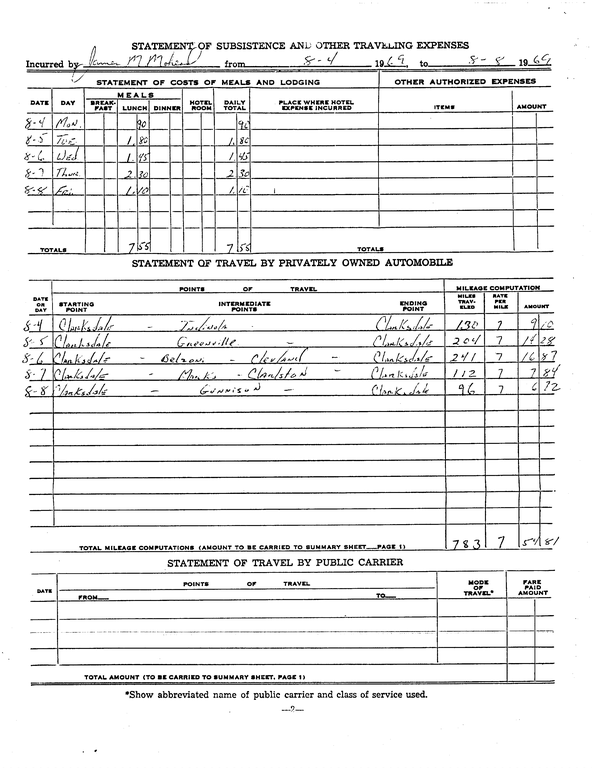 STATEMENT OF SUBSISTENCE AND OTHER TRAVELING EXPENSES
Incurred by James M from 8-4 1969, to 8-8 1969
STATEMENT OF COSTS OF MEALS AND LODGING OTHER AUTHORIZED EXPENSES
DATE DAY MEALS BREAK-FAST LUNCH DINNER HOTEL ROOM DAILY TOTAL PLACE WHERE HOTEL EXPENSE INCURRED ITEMS AMOUNT
8-4 Mon. 90 90
8-5 Tue 1.80 1.80
8-6 Wed 1.45 1.45
8-7 Thur. 2.30 2.30
8-8 Fri. 1.10 1.10
TOTALS 7 55 7 55 TOTALS
STATEMENT OF TRAVEL BY PRIVATELY OWNED AUTOMOBILE
POINTS OF TRAVEL MILEAGE COMPUTATION
DATE OR DAY STARTING POINT INTERMEDIATE POINTS ENDING POINT MILES TRAV-ELED RATE PER MILE AMOUNT
8-4 Clarksdale - Indianola Clarksdale 130 7 9 10
8-5 Clarksdale - Greenville - Clarksdale 204 7 14 28
8-6 Clarksdale - Belzoni - Cleveland - Clarksdale 241 7 16 87
8-7 Clarksdale - Marks - Charleston - Clarksdale 112 7 7 84
8-8 Clarksdale - Gunnison - Clarksdale 96 7 6 72
TOTAL MILEAGE COMPUTATIONS (AMOUNT TO BE CARRIED TO SUMMARY SHEET__PAGE 1) 783 7 54 81
STATEMENT OF TRAVEL BY PUBLIC CARRIER
DATE POINTS OF TRAVEL MODE OF TRAVEL* FARE PAID AMOUNT
FROM__ TO__
TOTAL AMOUNT (TO BE CARRIED TO SUMMARY SHEET, PAGE 1)
*Show abbreviated name of public carrier and class of service used.
—2—